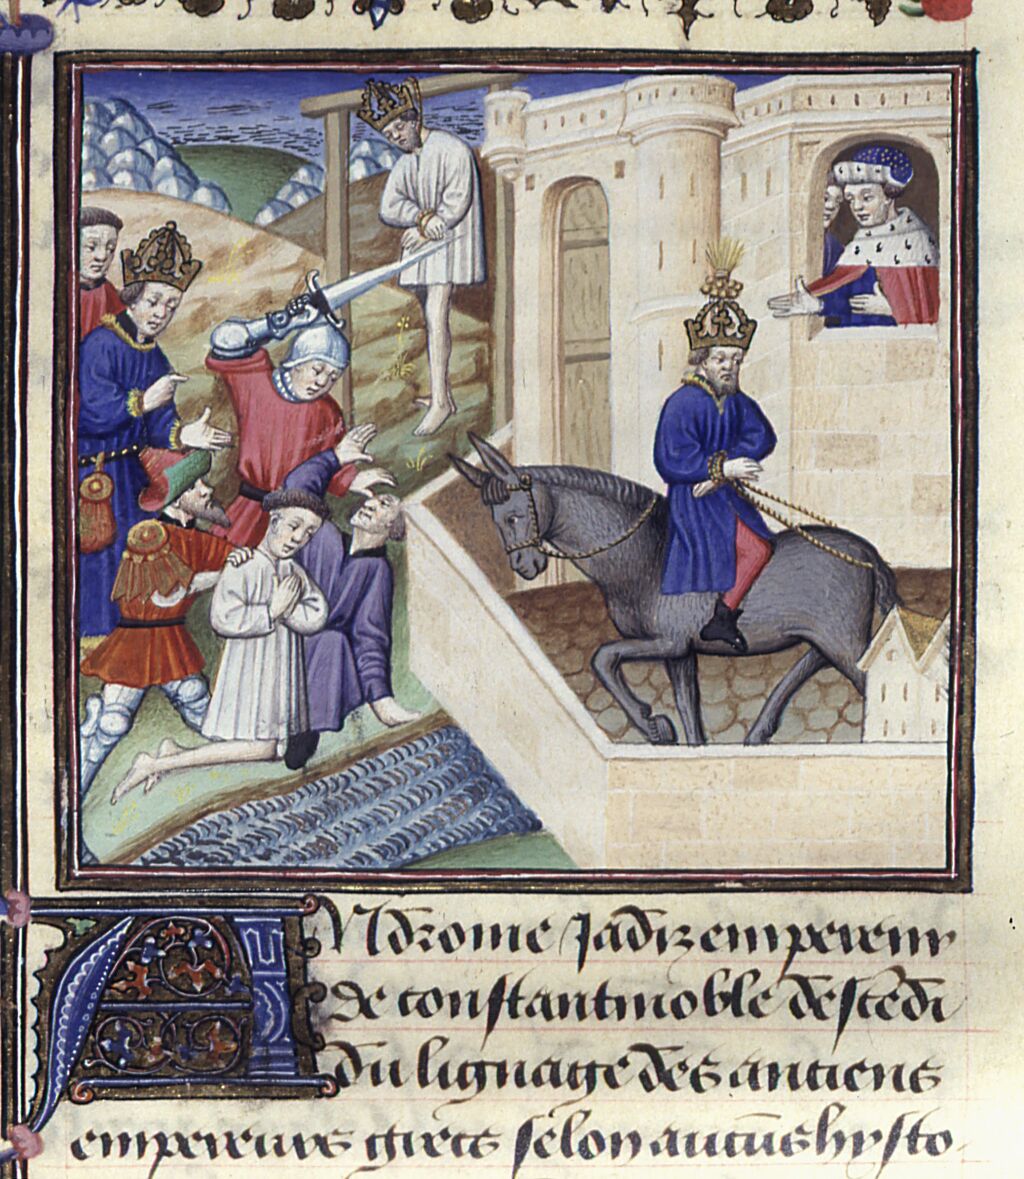 Androme jadiz empereur
de constantinoble descēdi
du lignage des anciens
empereurs grecs selon aucuns hysto-